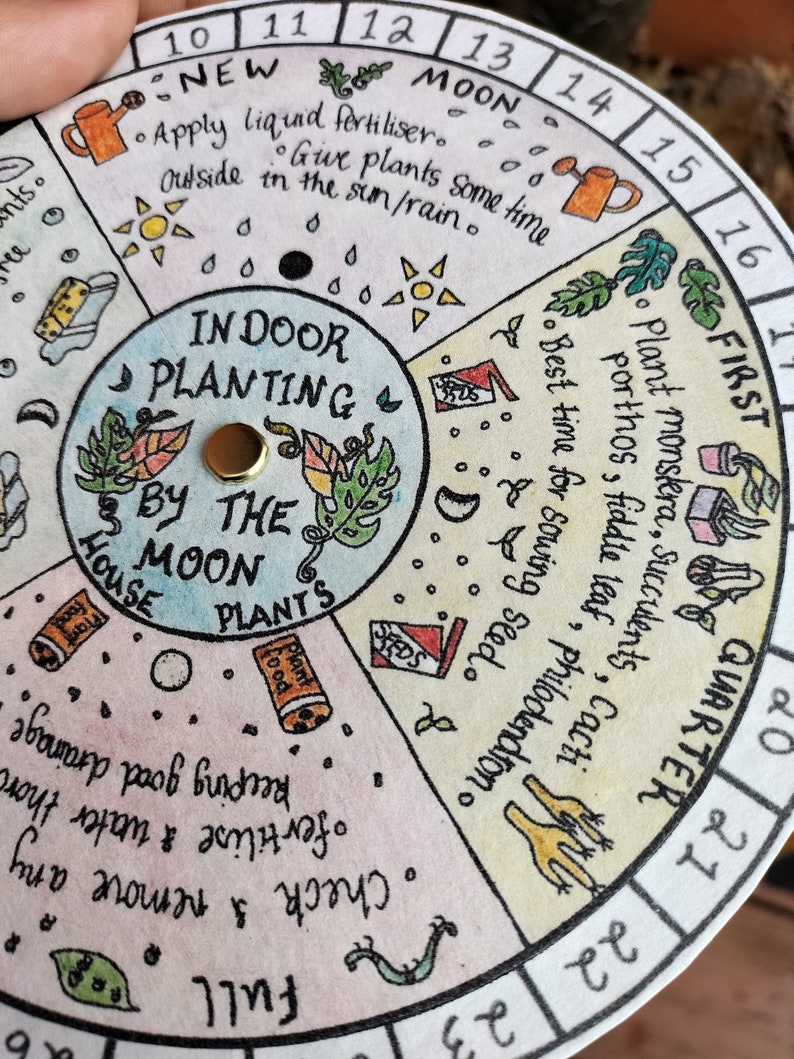 10 11 12 13 14 15 16 17
NEW MOON
Apply liquid fertiliser.
Give plants some time
outside in the sun/rain.
INDOOR
PLANTING
BY THE
MOON
HOUSE PLANTS
FIRST QUARTER
Plant monstera, succulents, cacti
porthos, fiddle leaf, philodendron.
Best time for sowing seed.
SEEDS
SEEDS
20 21 22 23
FULL
Check & remove any
fertilise & water
keeping good drainage
Plant food
Plant food
26